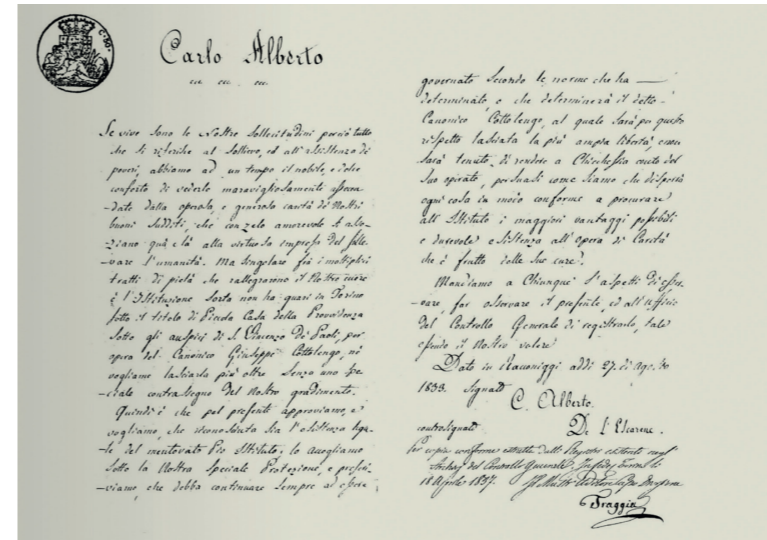 C. 50.
Carlo Alberto
ecc. ecc. ecc.
Se vive sono le Nostre sollecitudini perciò tutto
che si riferisce al sollievo, ed all'assistenza di
poveri, abbiamo ad un tempo il nobile, e dolce
conforto di vederle maravigliosamente assecon
-date dalla operosa, e generosa carità de' Nostri
buoni Sudditi, che con zelo amorevole s'asso-
-ciano quà e là alla virtuosa impresa del solle-
vare l'umanità. Ma singolare fra i moltiplici
tratti di pietà che rallegrarono il Nostro cuore
è l'Istituzione sorta non ha guari in Torino
sotto il titolo di Piccola Casa della Provvidenza
sotto gli auspici di S. Vincenzo De' Paoli, per
opera del Canonico Giuseppe Cottolengo, nè
vogliamo lasciarla più oltre senza uno spe-
ciale contrassegno del Nostro gradimento.
Quindi è che pel presenti approviamo, e
vogliamo, che riconosciuta sia l'esistenza lega-
-le del mentovato Pio Istituto, lo accogliamo
sotto la Nostra speciale Protezione, e prescri-
-viamo, che debba continuare sempre ad essere
governato secondo le norme che ha
determinato, e che determinerà il detto
Canonico Cottolengo, al quale sarà per questo
rispetto lasciata la più ampia libertà, onon
sarà tenuto, di rendere a Chicchessia conto del
suo operato, persuasi come siamo che disporrà
ogni cosa in modo conforme a procurare
all'Istituto i maggiori vantaggi possibili
e durevole esistenza all'opera di Carità
che è frutto delle sue cure.
Mandiamo a Chiunque s'aspetti di osser-
-vare, far osservare il presente, ed all'uffizio
del Controllo Generale di registrarlo, tale
essendo il Nostro volere
Dato in Racconiggi addì 27. di Agosto
1833. Signato
C. Alberto.
controsignato De l'Escarene.
Per copia conforme estratta dalli Registri esistenti negli
Archivj del Controllo Generale. Torino li
18 Aprile 1837.
Fraggia